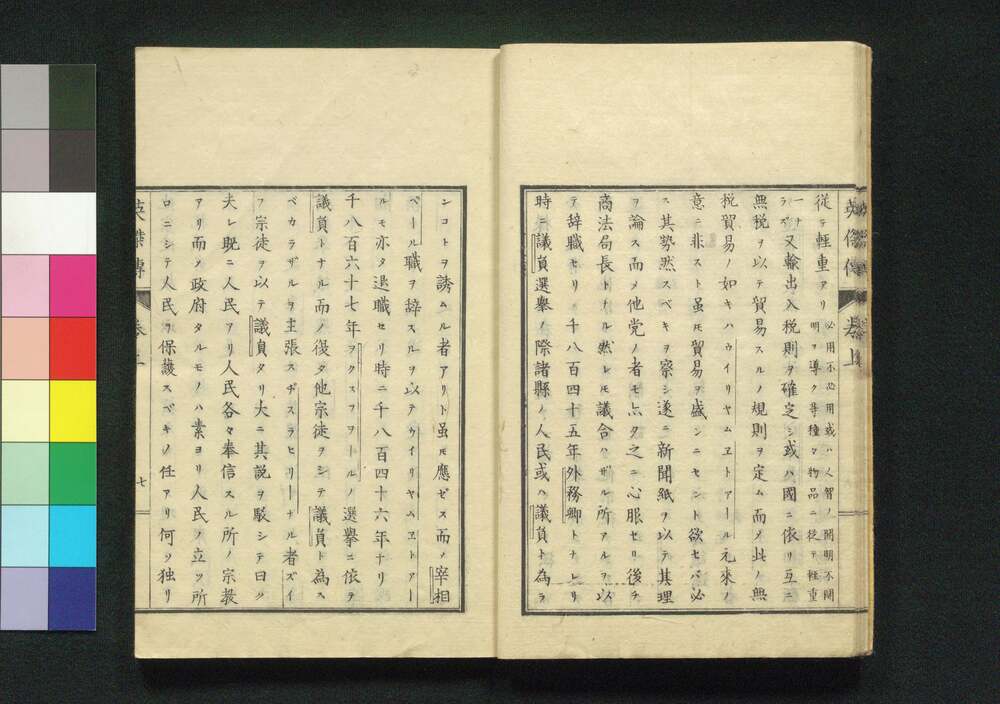 英傑傳 巻上
從テ軽重アリ必用不必用或ハ人智ノ開明不開
明ヲ導ク等種々物品ニ従テ軽重
一ナ
ラズ又輸出入税則ヲ確定シ或ハ國ニ依リ互ニ
無税ヲ以テ貿易スルノ規則ヲ定ム而メ此ノ無
税貿易ノ如キハウイリヤムヱトアール元來ノ
意ニ非スト虽モ貿易ヲ盛ンニセント欲セバ必
ス其勢然スベキヲ察シ遂ニ新聞紙ヲ以テ其理
ヲ論ス而メ他党ノ者モ亦タ之ニ心服セリ後チ
商法局長トナル然レモ議合ハザル所アルヲ以
テ辞職セリ千八百四十五年外務卿トナレリ
時ニ議員選舉ノ際諸縣ノ人民或ハ議員ト為ラ
ンコトヲ誘ムル者アリト虽モ應ゼス而ノ宰相
ペール職ヲ辞スルヲ以テウイリヤムヱトアー
ルモ亦タ退職セリ時ニ千八百四十六年ナリ
千八百六十七年ヲクスヲヲールノ選舉ニ依テ
議員トナル而ノ復タ他宗徒ヲシテ議員ト為ス
ベカラザルヲ主張スヂスラヒリーナル者ズイ
フ宗徒ヲ以テ議員タリ大ニ其説ヲ駁シテ曰ク
夫レ既ニ人民アリ人民各々奉信スル所ノ宗教
アリ而メ政府タルモノハ素ヨリ人民ノ立ツ所
ロニシテ人民ヲ保護スベキノ任アリ何ソ独リ
英傑傳 巻上 七